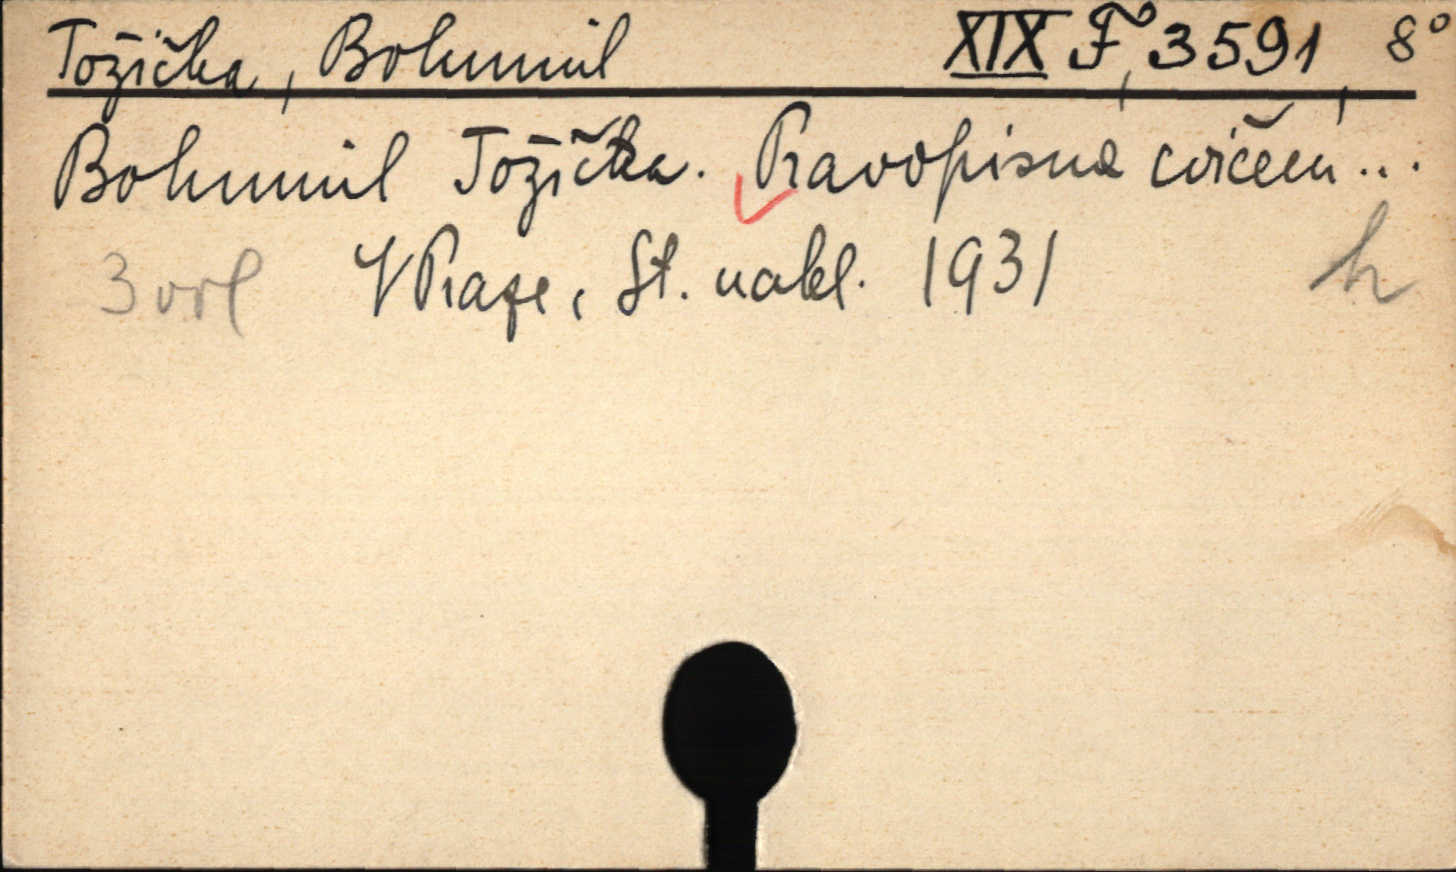 Tožička, Bohumil XIX F 3591, 8°
Bohumil Tožička. Pravopisná cvičení...
V Praze, St. nakl. 1931